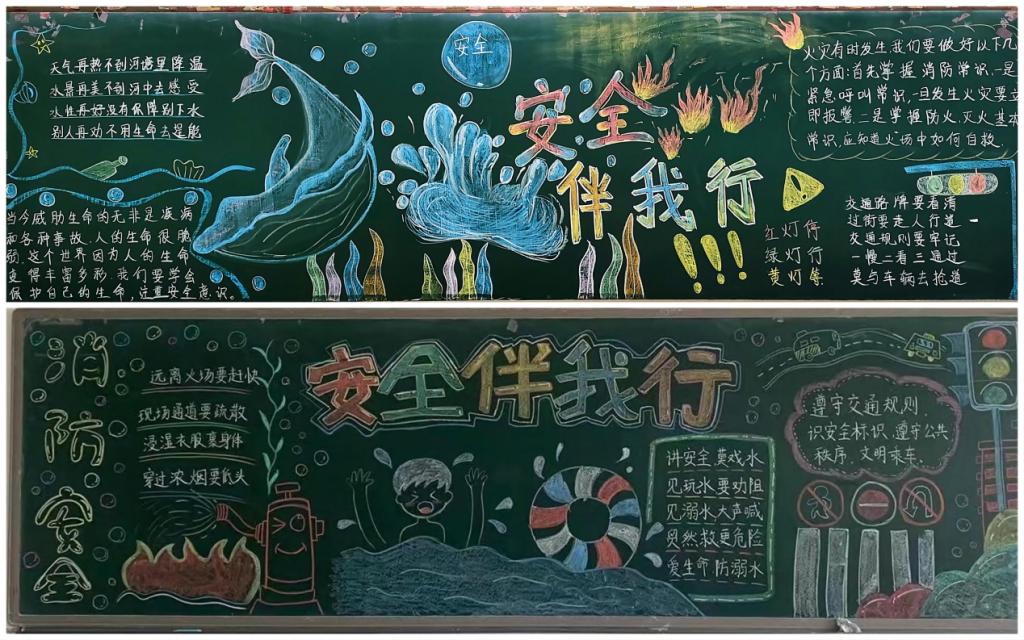 天气再热不到河塘里降温
水景再美不到河中去感受
水性再好没有保障别下水
别人再劝不用生命去逞能
当今威胁生命的无非是疾病
和各种事故.人的生命很脆
弱.这个世界因为人的生命
变得丰富多彩.我们要学会
保护自己的生命,注重安全意识。
安全
安全
伴我行
!!!
火灾有时发生,我们要做好以下几
个方面:首先掌握消防常识.一是
紧急呼叫常识,一旦发生火灾要立
即报警.二是掌握防火、灭火基本
常识.应知道火场中如何自救.
红灯停
绿灯行
黄灯等
交通路牌要看清
过街要走人行道
交通规则要牢记
一慢二看三通过
莫与车辆去抢道
消防安全
远离火场要赶快
现场通道要疏散
浸湿衣服裹身体
穿过浓烟要低头
安全伴我行
讲安全,莫戏水
见玩水要劝阻
见溺水大声喊
贸然救更危险
爱生命防溺水
遵守交通规则.
识安全标识.遵守公共
秩序.文明乘车.